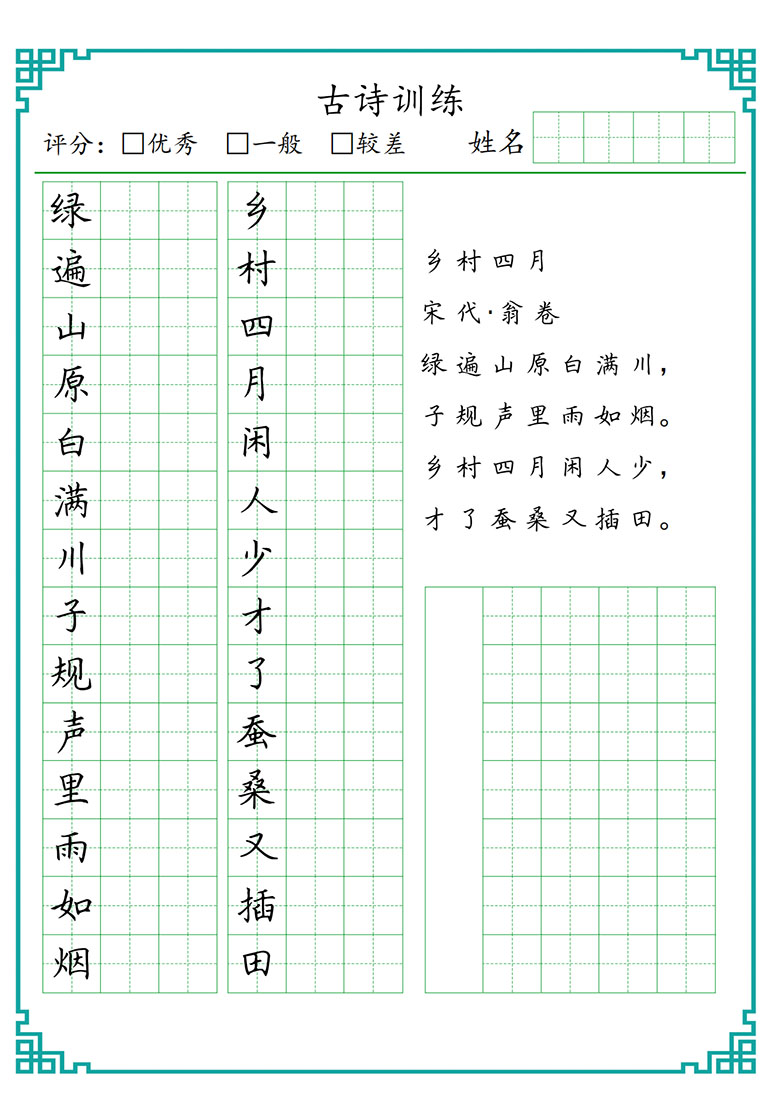 古诗训练
评分：□优秀 □一般 □较差 姓名
绿遍山原白满川子规声里雨如烟
乡村四月闲人少才了蚕桑又插田
乡村四月
宋代·翁卷
绿遍山原白满川，
子规声里雨如烟。
乡村四月闲人少，
才了蚕桑又插田。